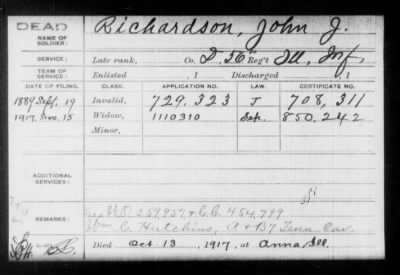 DEAD
NAME OF SOLDIER: Richardson, John J.
SERVICE: Late rank, Co. D, 56" Reg't Ill, Inf,
TERM OF SERVICE: Enlisted , 1 Discharged , 1
DATE OF FILING. CLASS. APPLICATION NO. LAW. CERTIFICATE NO.
1889 Sept. 19 Invalid, 729,323 J 708,311
1917. Nov. 15 Widow, 1110310 Sep. 850,242
Minor,
ADDITIONAL SERVICES:
REMARKS: W.O. 259957 & C.C. 484,799
Wm C. Hutchins, A & B 7 Tenn. Cav.
Died Oct 13, 1917, at Anna, Ill.